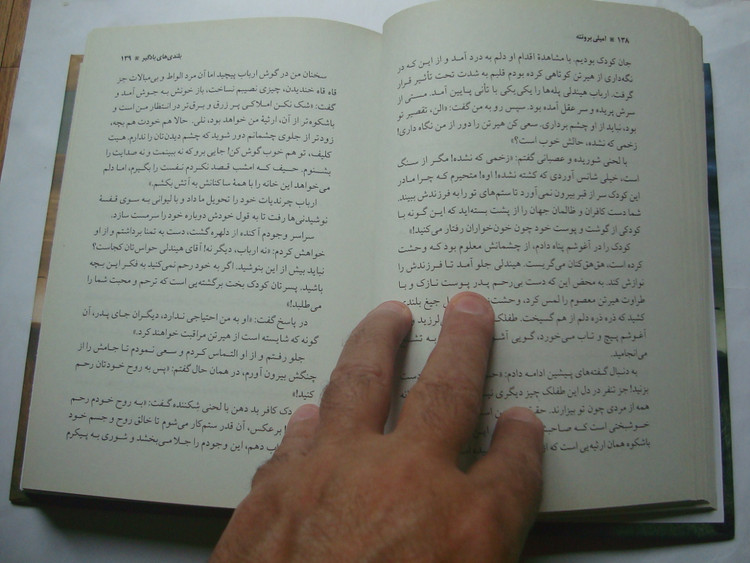 ۱۳۸ * امیلی برونته
جان کودک بودیم. با مشاهدهٔ اقدام او دلم به درد آمد و از این که در
نگه‌داری از هیرتن کوتاهی کرده بودم قلبم به شدت تحت تأثیر قرار
گرفت. ارباب هیندلی پله‌ها را یکی‌یکی با تأنی پایین آمد. مستی از
سرش پریده و سر عقل آمده بود. سپس رو به من گفت: «الن، تقصیر تو
بود، نباید از او چشم برداری. سعی کن هیرتن را دور از من نگاه داری!
زخمی که نشده، حالش خوب است؟»
با لحنی شوریده و عصبانی گفتم: «زخمی که نشده! مگر از سنگ
است، خیلی شانس آوردی که کشته نشده! اوه! متحیرم که چرا مادر
این کودک سر از قبر بیرون نمی‌آورد تا ستم‌های تو را به فرزندش ببیند.
شما دست کافران و ظالمان جهان را از پشت بسته‌اید که این گونه با
کودکی از گوشت و پوست خود چون خون‌خواران رفتار می‌کنید!»
کودک را در آغوشم پناه دادم، از چشمانش معلوم بود که وحشت
کرده است، هق‌هق‌کنان می‌گریست. هیندلی جلو آمد تا فرزندش را
نوازش کند. به محض این که دست بی‌رحم پدر پوست نازک و با
طراوت هیرتن معصوم را لمس کرد، وحشت جیغ بلندی
کشید که ذره ذره دلم از هم گسیخت. طفلک لرزید
آغوشم پیچ و تاب می‌خورد، گویی به تشنج
می‌انجامید.
به دنبال گفته‌های پیشین ادامه دادم:
بزنید! جز تنفر در دل این طفلک چیز دیگری
همه از مردی چون تو بیزارند.
خوشبختی است که صاحب
باشکوه همان ارثیه‌یی است که
بلندی‌های بادگیر * ۱۳۹
سخنان من در گوش ارباب پیچید اما آن مرد الواط و بی‌مبالات جز
قاه قاه خندیدن، چیزی نصیبم نساخت، باز خونش به جوش آمد و
گفت: «شک نکن املاکی پر زرق و برق‌تر در انتظار من است و
باشکوه‌تر از آن، ارثیهٔ من خواهد بود، نلی. حالا هم خودت هم بچه،
زودتر از جلوی چشمانم دور شوید که چشم دیدن‌تان را ندارم. هیت
کلیف، تو هم خوب گوش کن! جایی برو که نه ببینمت و نه صدایت را
بشنوم. حیف که امشب قصد نکردم نفست را بگیرم، اما دلم
می‌خواهد این خانه را با همهٔ ساکنانش به آتش بکشم.»
ارباب چرندیات خود را تحویل ما داد و با لیوانی به سوی قفسهٔ
نوشیدنی‌ها رفت تا به قول خودش دوباره خود را سرمست سازد.
سراسر وجودم آکنده از دلهره گشت، دست به تمنا برداشتم و از او
خواهش کردم: «نه ارباب، دیگر نه! آقای هیندلی حواس‌تان کجاست؟
نباید بیش از این بنوشید. اگر به خود رحم نمی‌کنید به فکر این بچه
باشید. پسرتان کودک بخت برگشته‌یی است که ترحم و محبت شما را
می‌طلبد!»
در پاسخ گفت: «او به من احتیاجی ندارد، دیگران جای پدر، آن
گونه که شایسته است از هیرتن مراقبت خواهند کرد.»
جلو رفتم و از او التماس کردم و سعی نمودم تا جامش را از
چنگش بیرون آورم، در همان حال گفتم: «پس به روح خودتان رحم
کنید!»
کافر بد دهن با لحنی شکننده گفت: «به روح خودم رحم
برعکس، آن قدر ستم‌کار می‌شوم تا خالق روح و جسم خود
دهم، این وجودم را جلا می‌بخشد و شوری به پیکرم